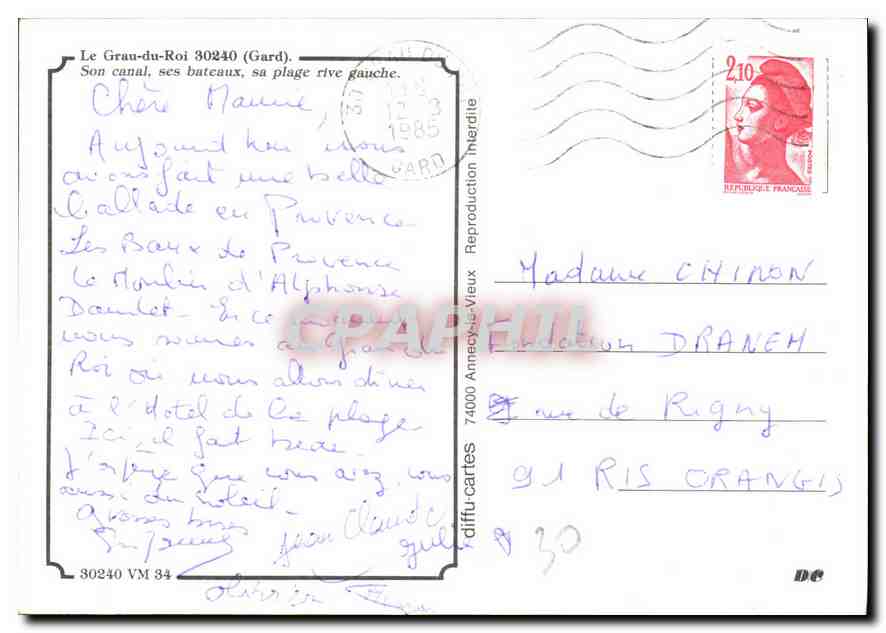 Le Grau-du-Roi 30240 (Gard).
Son canal, ses bateaux, sa plage rive gauche.
Chère Mamie,
Aujourd'hui nous
avons fait une belle
ballade en Provence
Les Baux de Provence
Le Moulin d'Alphonse
Daudet - En ce moment
nous sommes au Grau du
Roi où nous allons dîner
à l'Hotel de la plage
Ici, il fait beau.
J'espère que vous avez, vous
aussi du soleil -
Grosses bises
Jean Claude
Julie
Olivier
30240 VM 34
diffu-cartes 74000 Annecy-le-Vieux Reproduction Interdite
12-9
1985
GARD
2,10
POSTES
REPUBLIQUE FRANÇAISE
Madame CHINON
Fondation DRANEM
rue de Rigny
91 RIS ORANGIS
30
DC
CPAPHIL